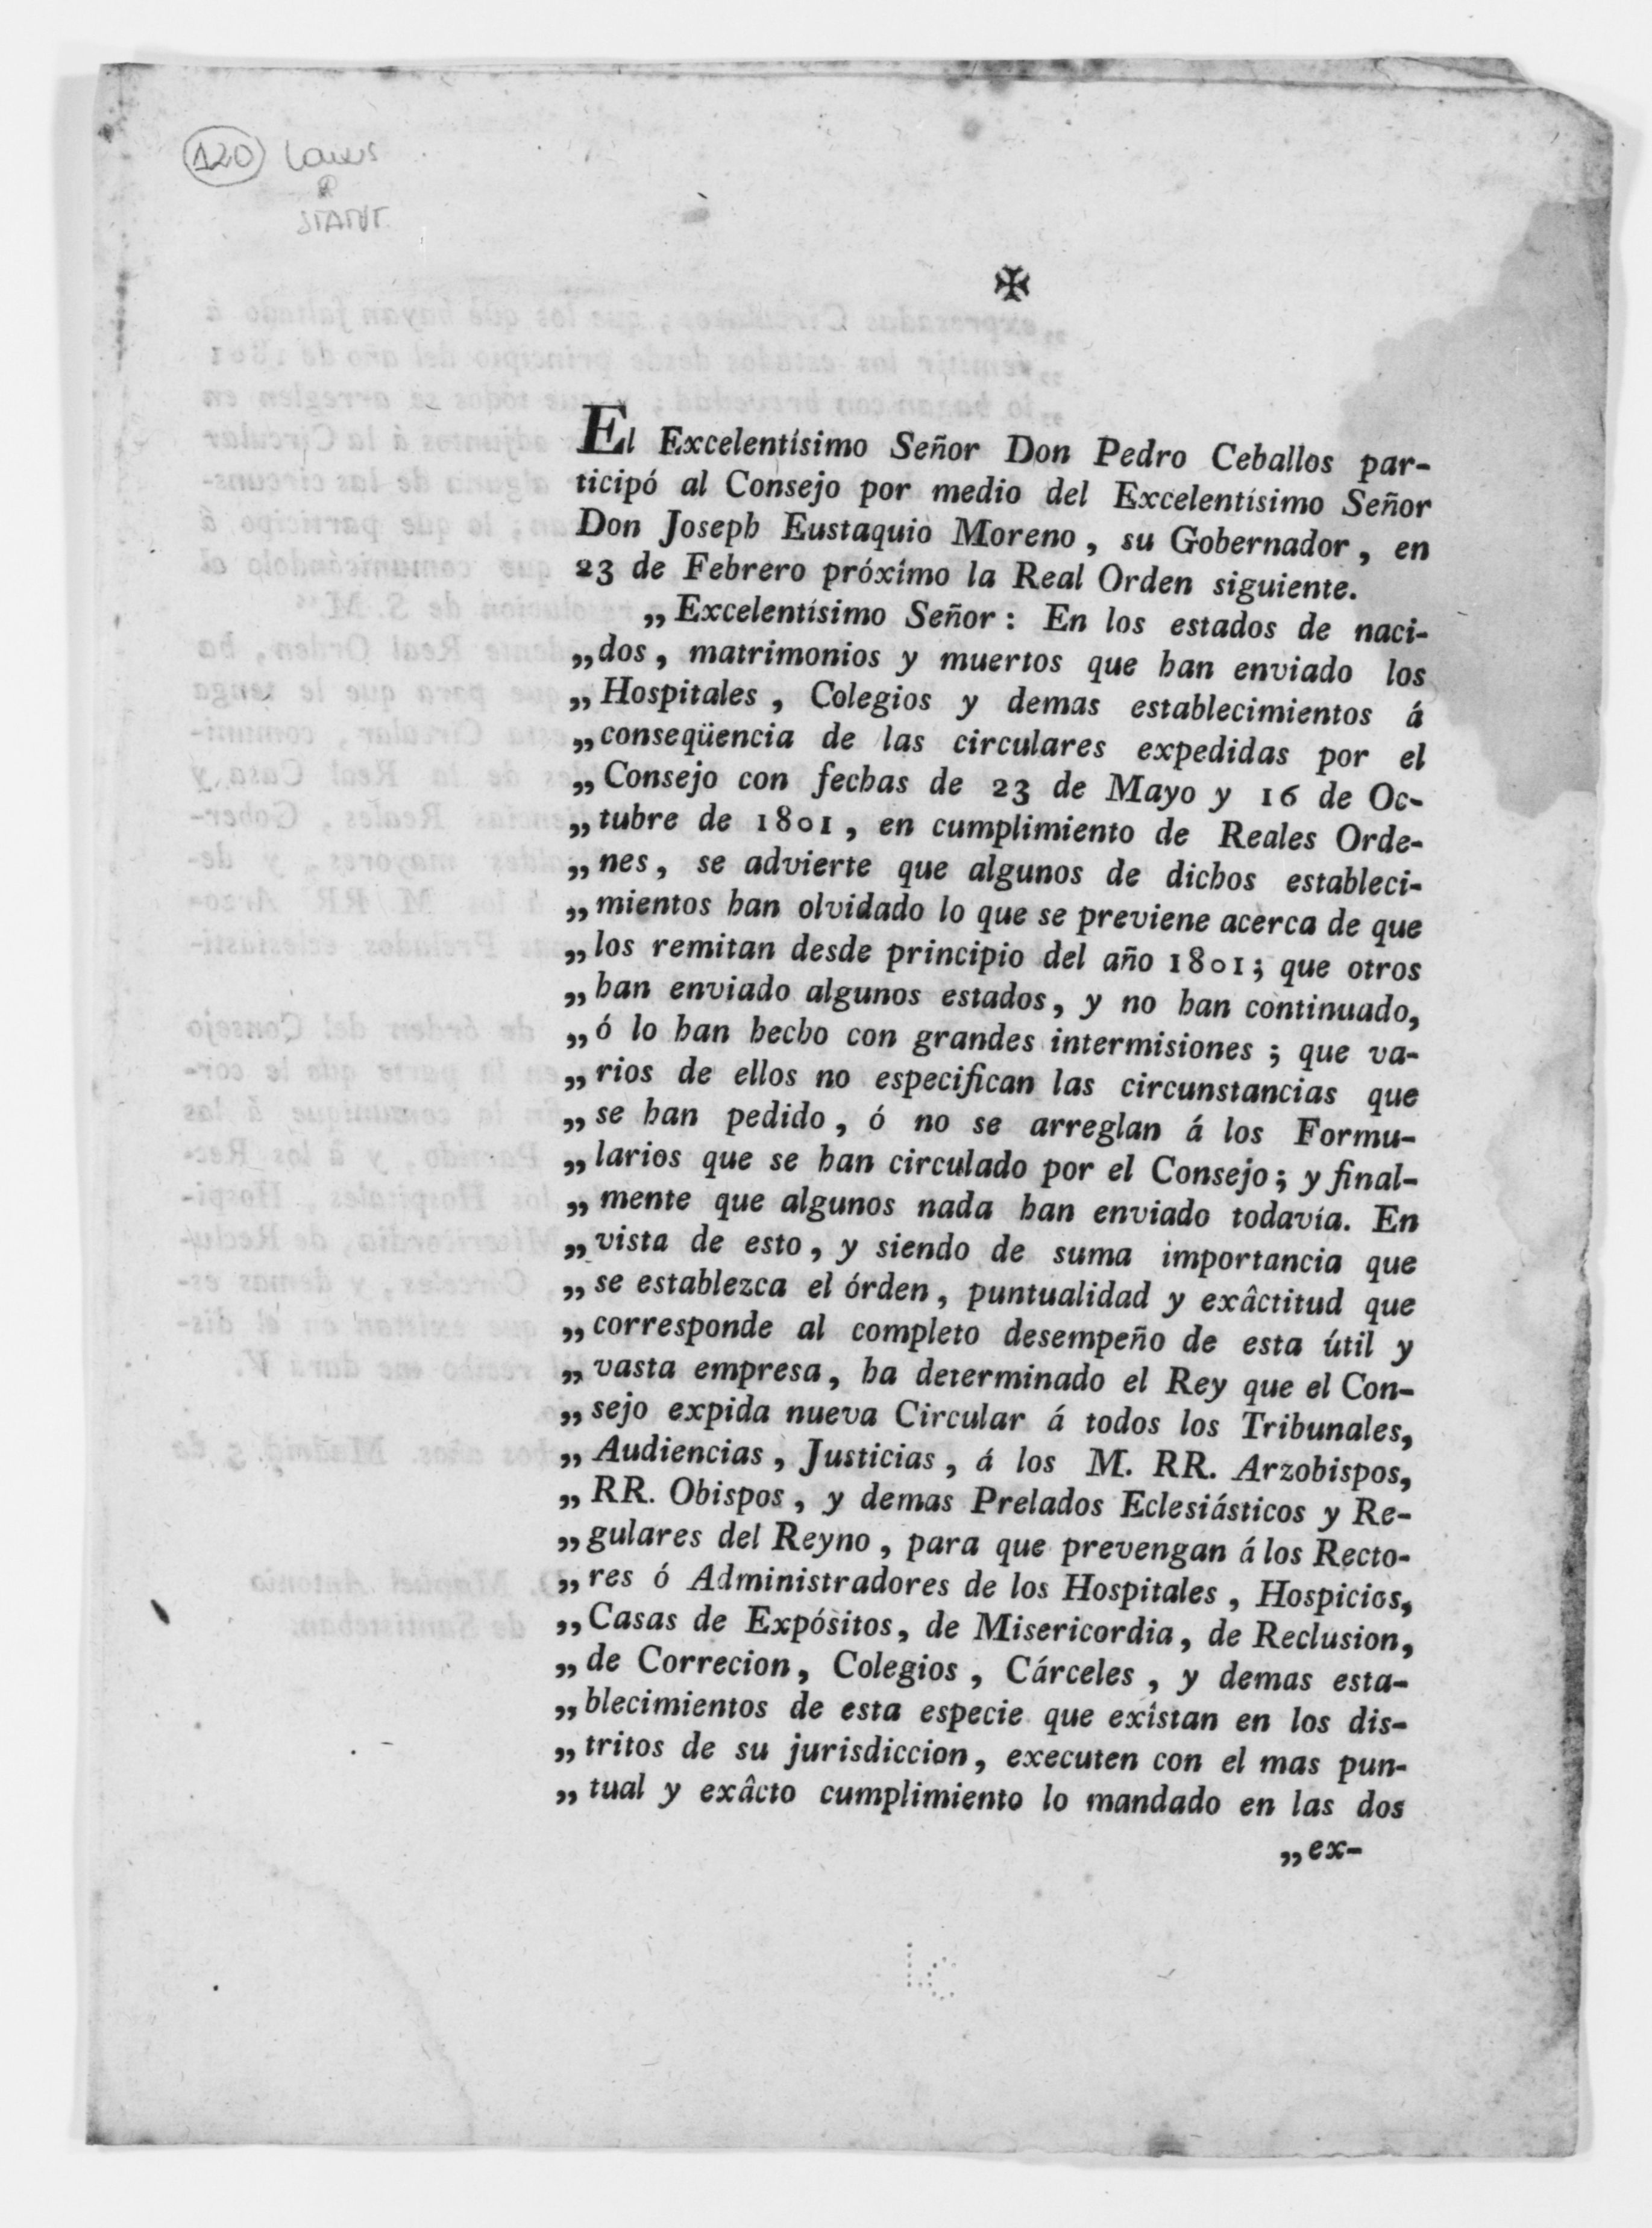 120 Laws
&
STATUT.
✠
El Excelentísimo Señor Don Pedro Ceballos par-
ticipó al Consejo por medio del Excelentísimo Señor
Don Joseph Eustaquio Moreno, su Gobernador, en
23 de Febrero próxîmo la Real Orden siguiente.
„Excelentísimo Señor: En los estados de naci-
„dos, matrimonios y muertos que han enviado los
„Hospitales, Colegios y demas establecimientos á
„conseqüencia de las circulares expedidas por el
„Consejo con fechas de 23 de Mayo y 16 de Oc-
„tubre de 1801, en cumplimiento de Reales Orde-
„nes, se advierte que algunos de dichos estableci-
„mientos han olvidado lo que se previene acerca de que
„los remitan desde principio del año 1801; que otros
„han enviado algunos estados, y no han continuado,
„ó lo han hecho con grandes intermisiones; que va-
„rios de ellos no especifican las circunstancias que
„se han pedido, ó no se arreglan á los Formu-
„larios que se han circulado por el Consejo; y final-
„mente que algunos nada han enviado todavía. En
„vista de esto, y siendo de suma importancia que
„se establezca el órden, puntualidad y exâctitud que
„corresponde al completo desempeño de esta útil y
„vasta empresa, ha determinado el Rey que el Con-
„sejo expida nueva Circular á todos los Tribunales,
„Audiencias, Justicias, á los M. RR. Arzobispos,
„RR. Obispos, y demas Prelados Eclesiásticos y Re-
„gulares del Reyno, para que prevengan á los Recto-
„res ó Administradores de los Hospitales, Hospicios,
„Casas de Expósitos, de Misericordia, de Reclusion,
„de Correcion, Colegios, Cárceles, y demas esta-
„blecimientos de esta especie que exîstan en los dis-
„tritos de su jurisdiccion, executen con el mas pun-
„tual y exâcto cumplimiento lo mandado en las dos
„ex-
LC